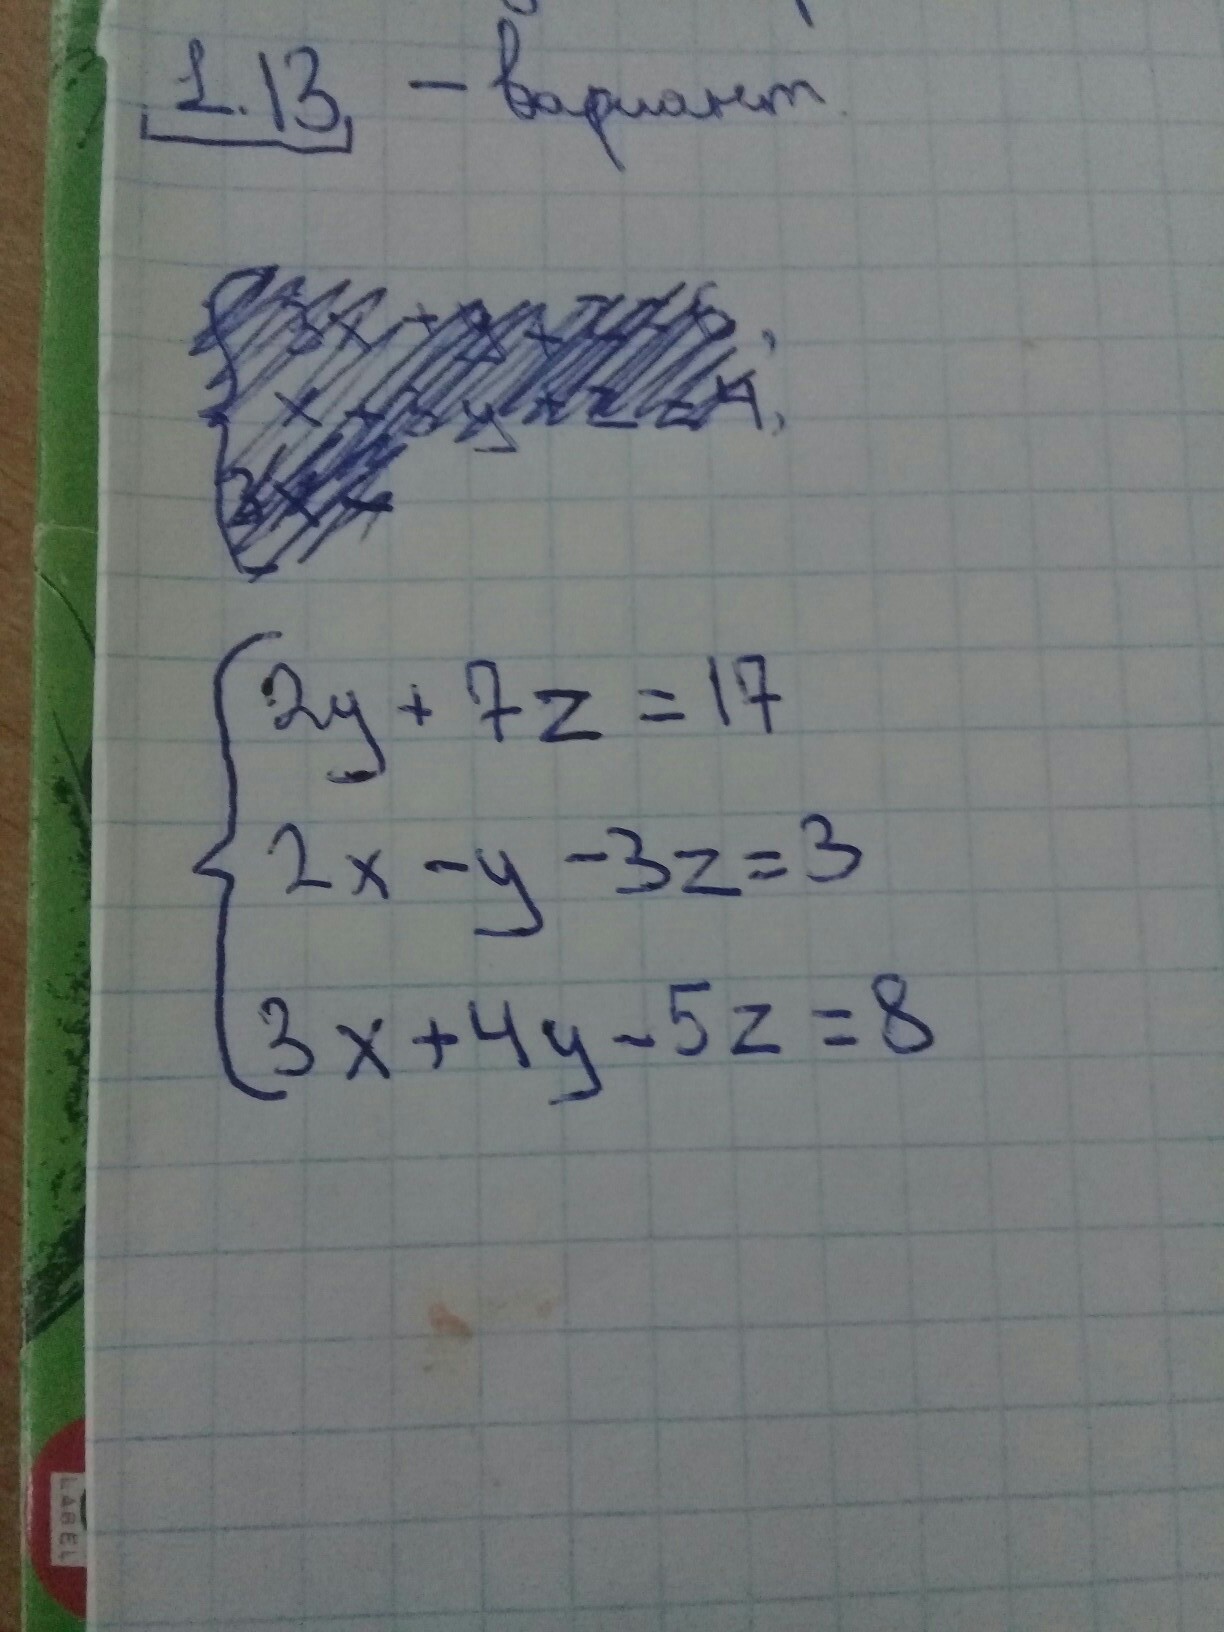 1.13 - вариант.
2y + 7z = 17
2x - y - 3z = 3
3x + 4y - 5z = 8
LABEL